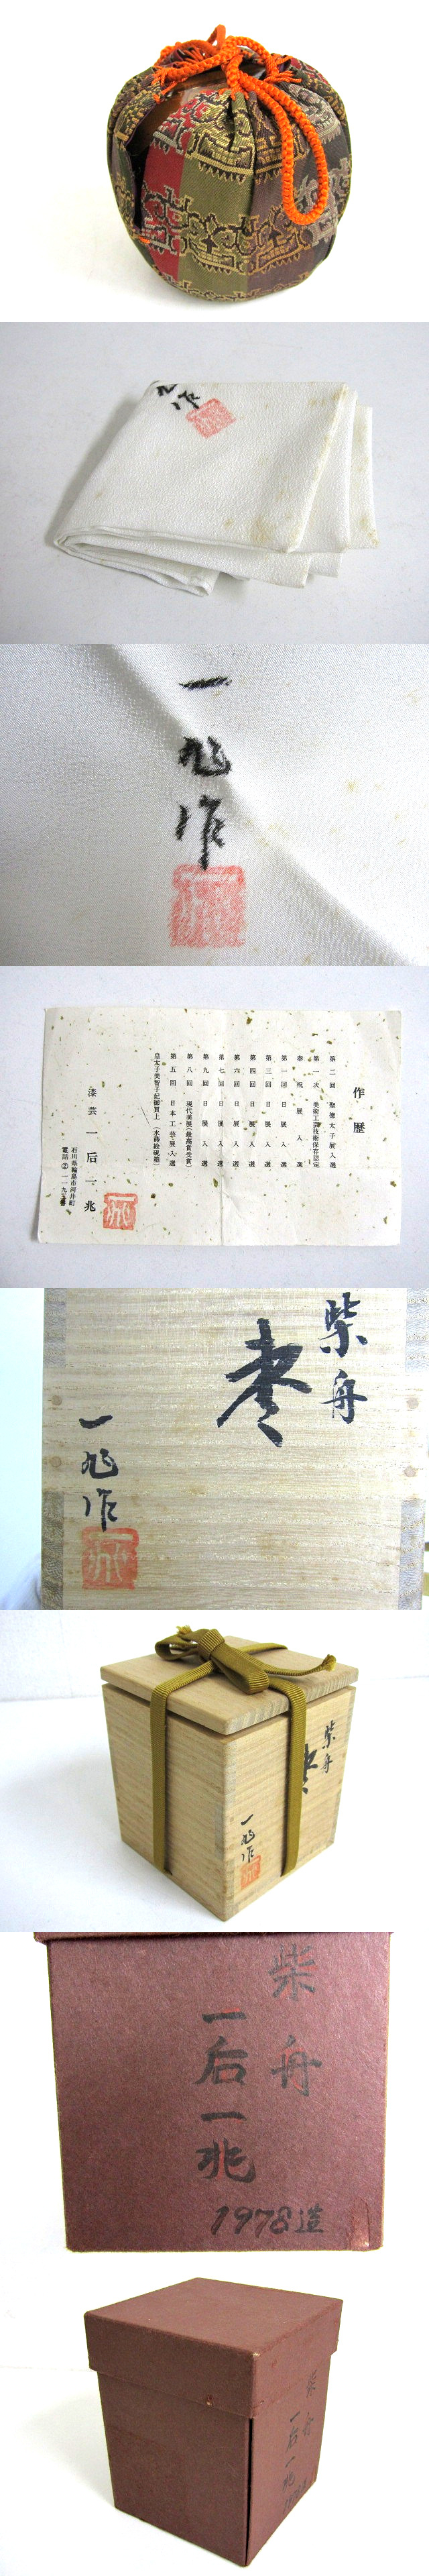 作
一兆作
作歴
第二回 聖徳太子展入選
第一次 美術工芸技術保存認定
奉祝展入選
第一回日展入選
第三回日展入選
第四回日展入選
第六回日展入選
第七回日展入選
第九回日展入選
第八回 現代美展(最高賞受賞)
第五回 日本工芸展入選
皇太子美智子妃御買上
漆芸 一后一兆
石川県輪島市河井町
柴舟
棗
一兆作
柴舟
棗
一兆作
柴舟
一后一兆
1978造
柴舟
一后一兆